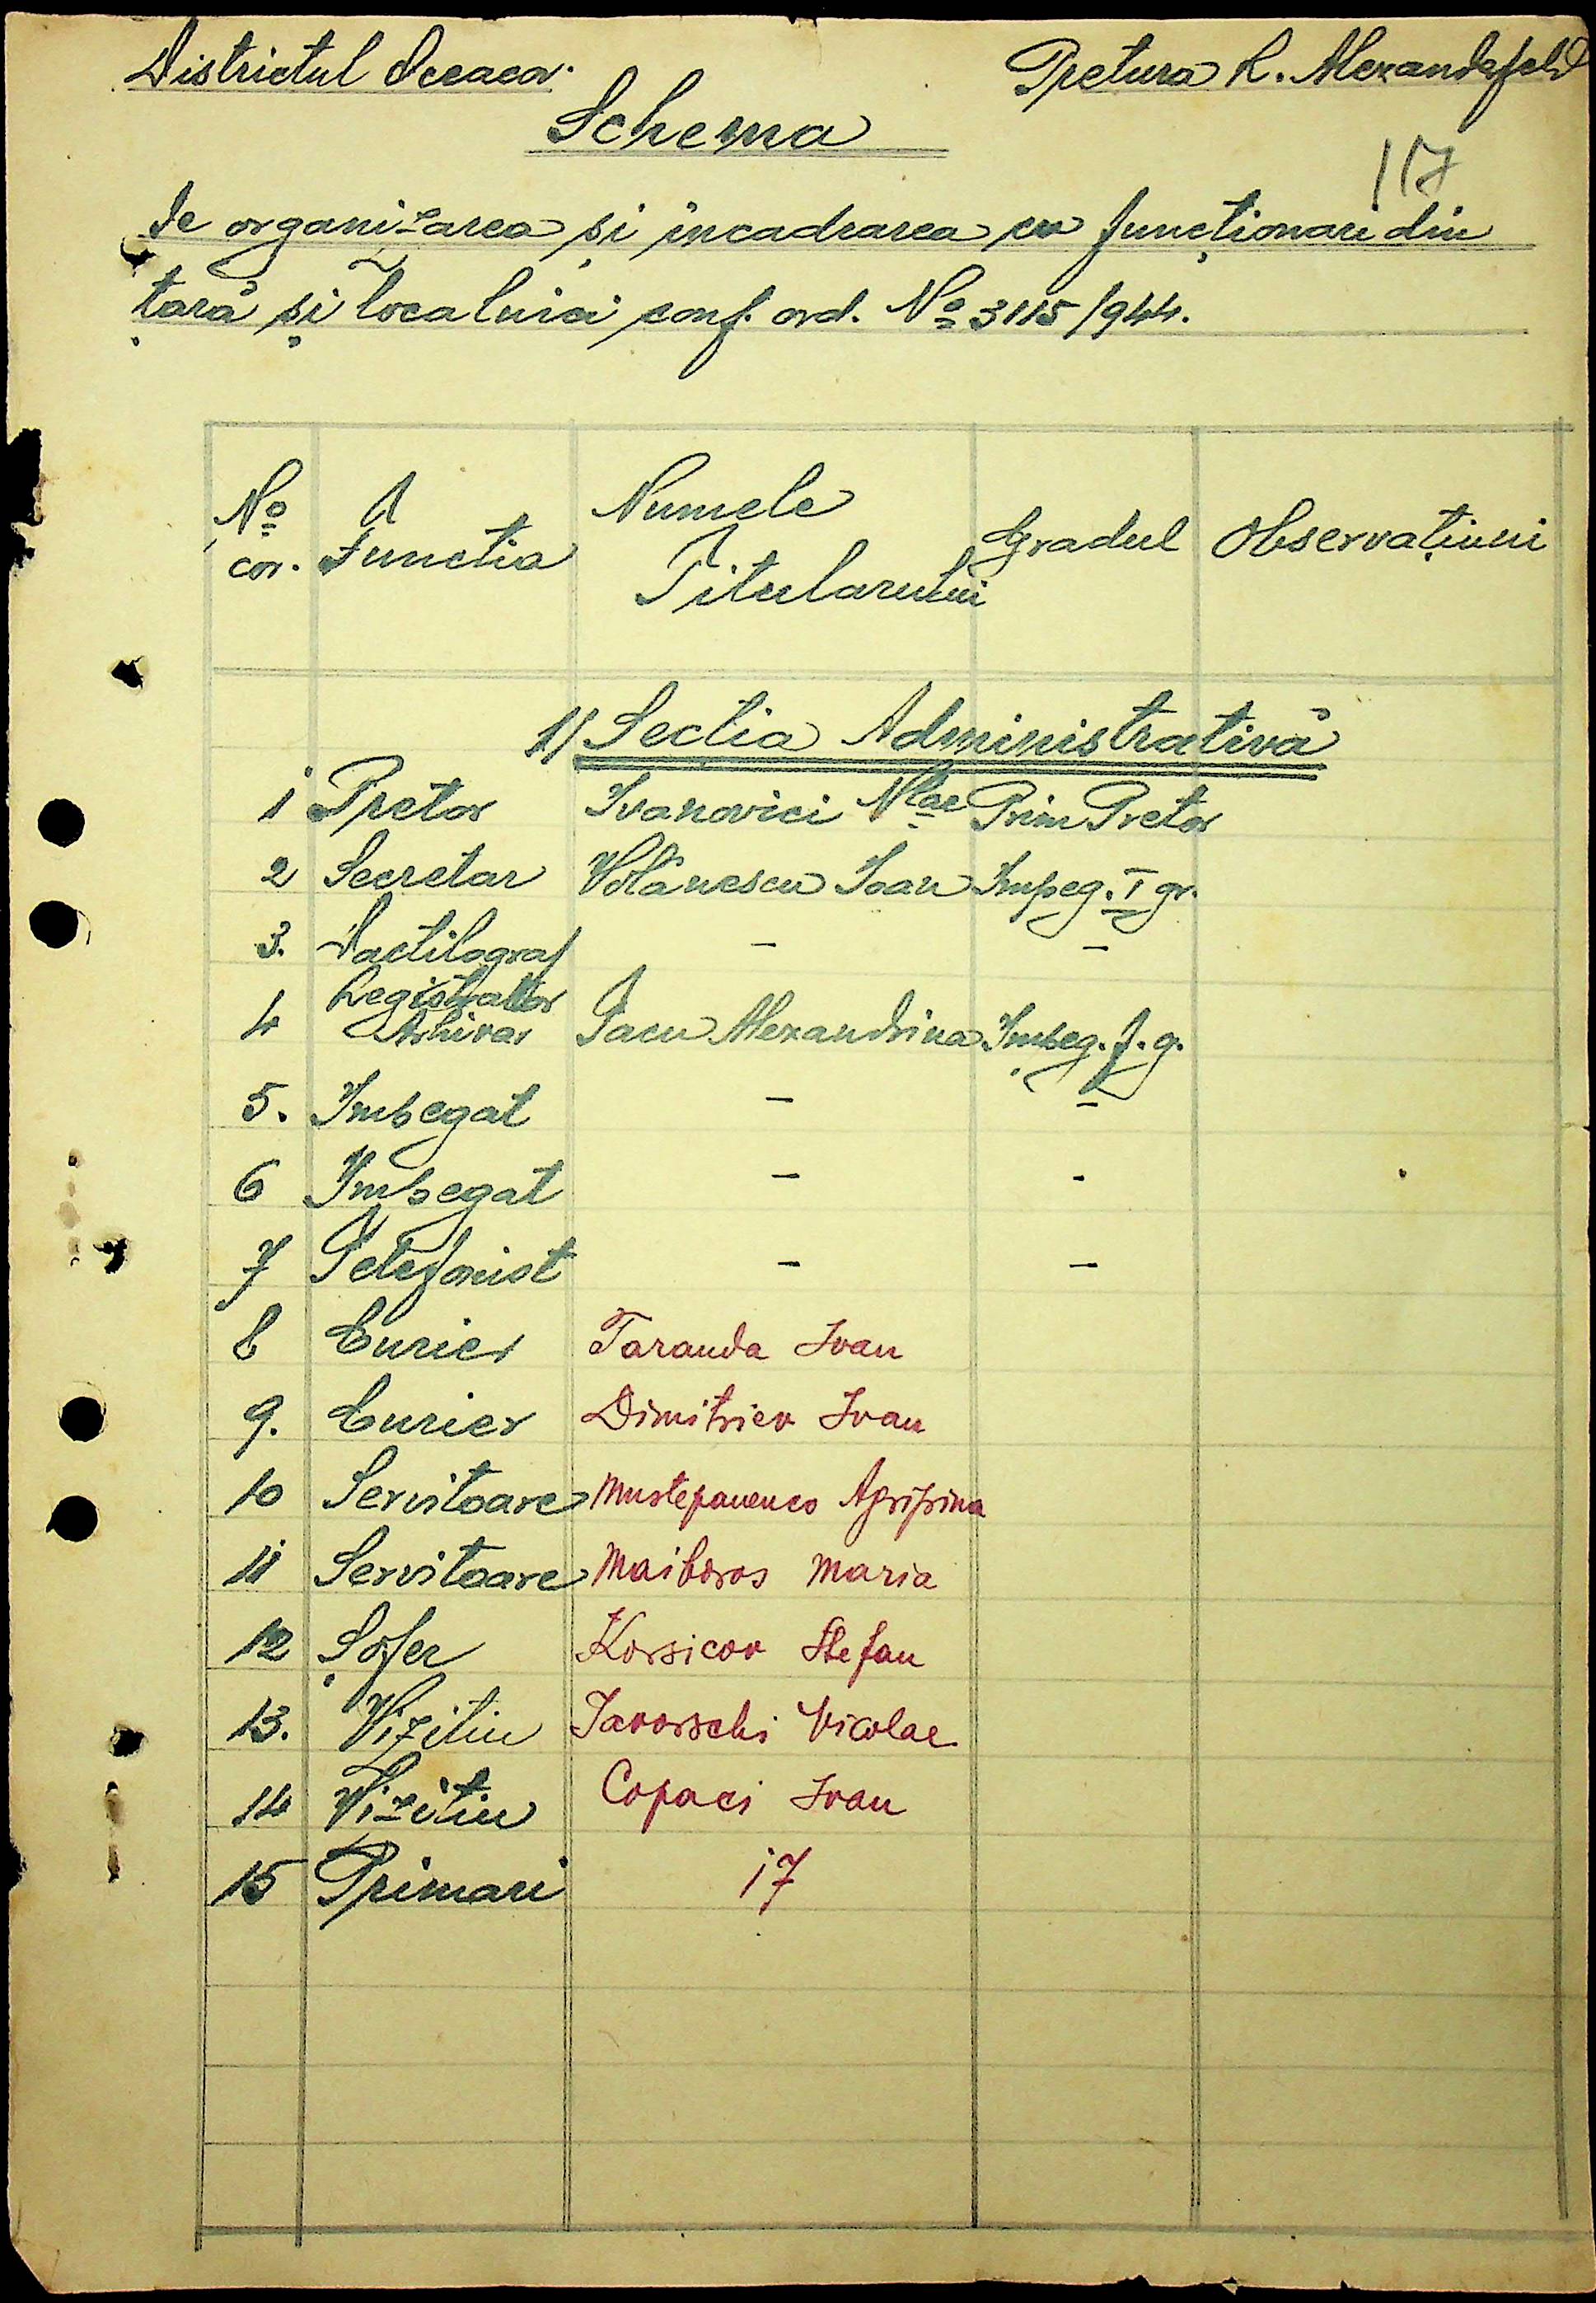 Districtul Oceacov.
Pretura R. Alexanderfeld
Schema
117
de organizarea și încadrarea cu funcționari din
țară și localnici conf. ord. No 3115/944.
No cor. Functia Numele Titularului Gradul Observațiuni
1/ Sectia Administrativă
1 Pretor Ivanovici Nlae Prim Pretor
2 Secretar Volănescu Ioan Impeg. I gr.
3. Dactilograf - -
4 Registrator Arhivar Pacu Alexandrina Impeg. f. g.
5. Impegat - -
6 Impegat - -
7 Telefonist - -
8 Curier Taranda Ivan
9. Curier Dimitriev Ivan
10 Servitoare Mustepanenco Agripina
11 Servitoare Maiboros Maria
12 Șofer Korsicov Stefan
13. Vizitiu Iavorschi Nicolae
14 Vizitiu Copaci Ivan
15 Primari 17